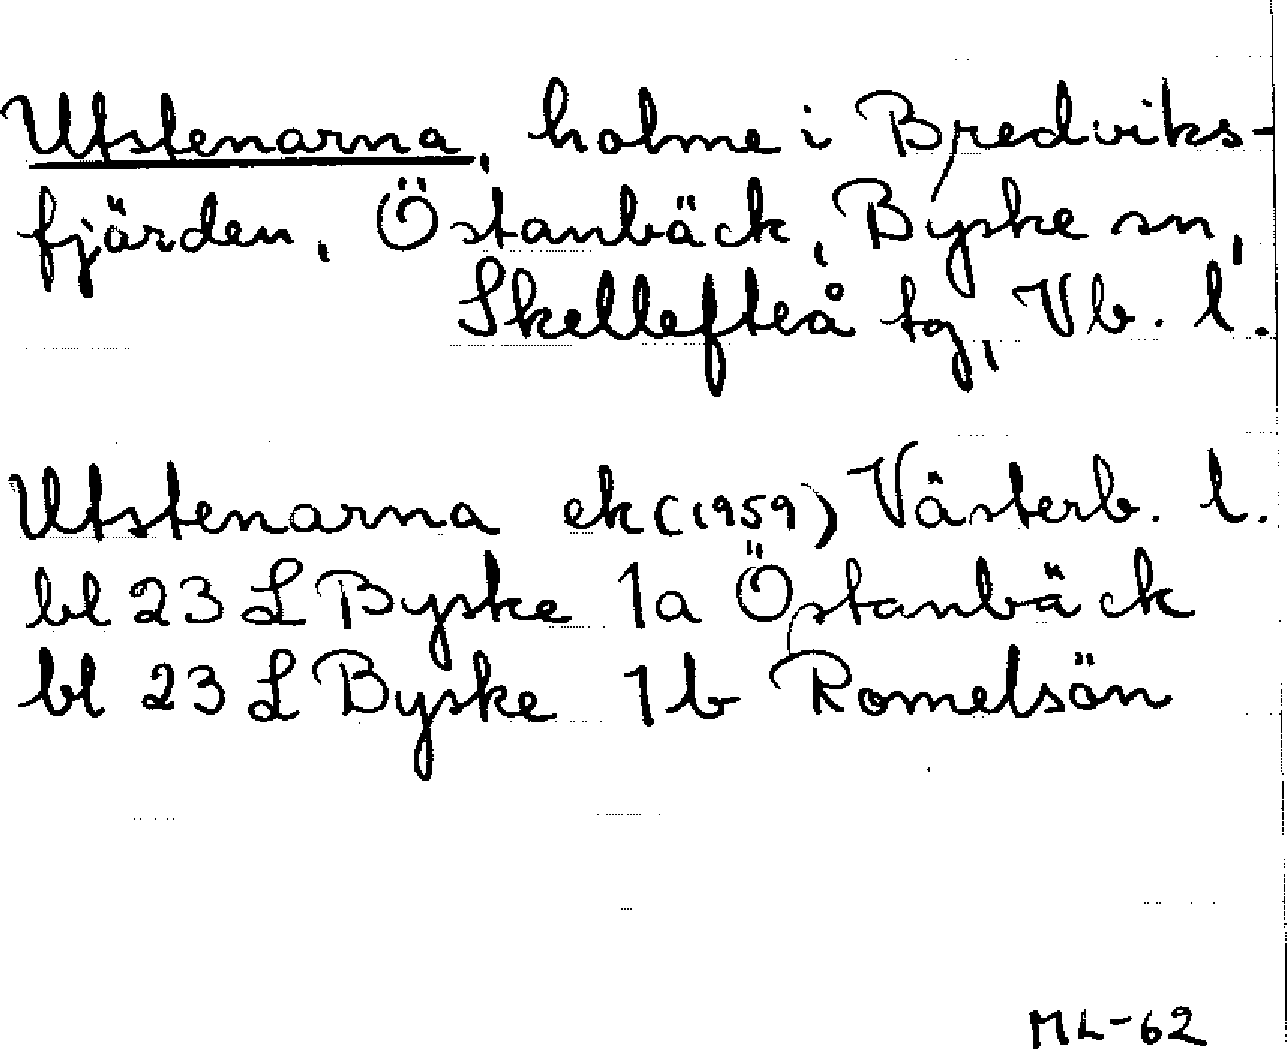 Utstenarna, holme i Bredviks-
fjärden, Östanbäck, Byske sn,
Skellefteå tg, Vb. l.
Utstenarna ek (1959) Västerb. l.
bl 23 L Byske 1a Östanbäck
bl 23 L Byske 1b Romelsön
ML-62